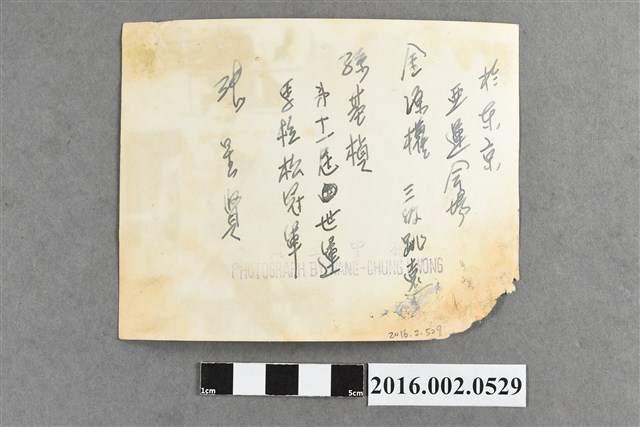 於东京
亞運会場
金源權 三級跳遠
孫基禎
第十一屆世運
馬拉松冠軍
張星賢
PHOTOGRAPH BY WONG
2016.2.529
1cm 5cm
2016.002.0529